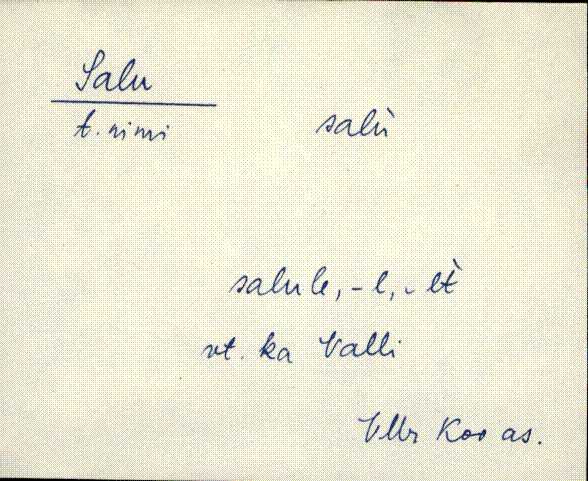 Salu
t. nimi salù
salule, -l, -lt̀
vt. ka Valli
Vllr Koo as.